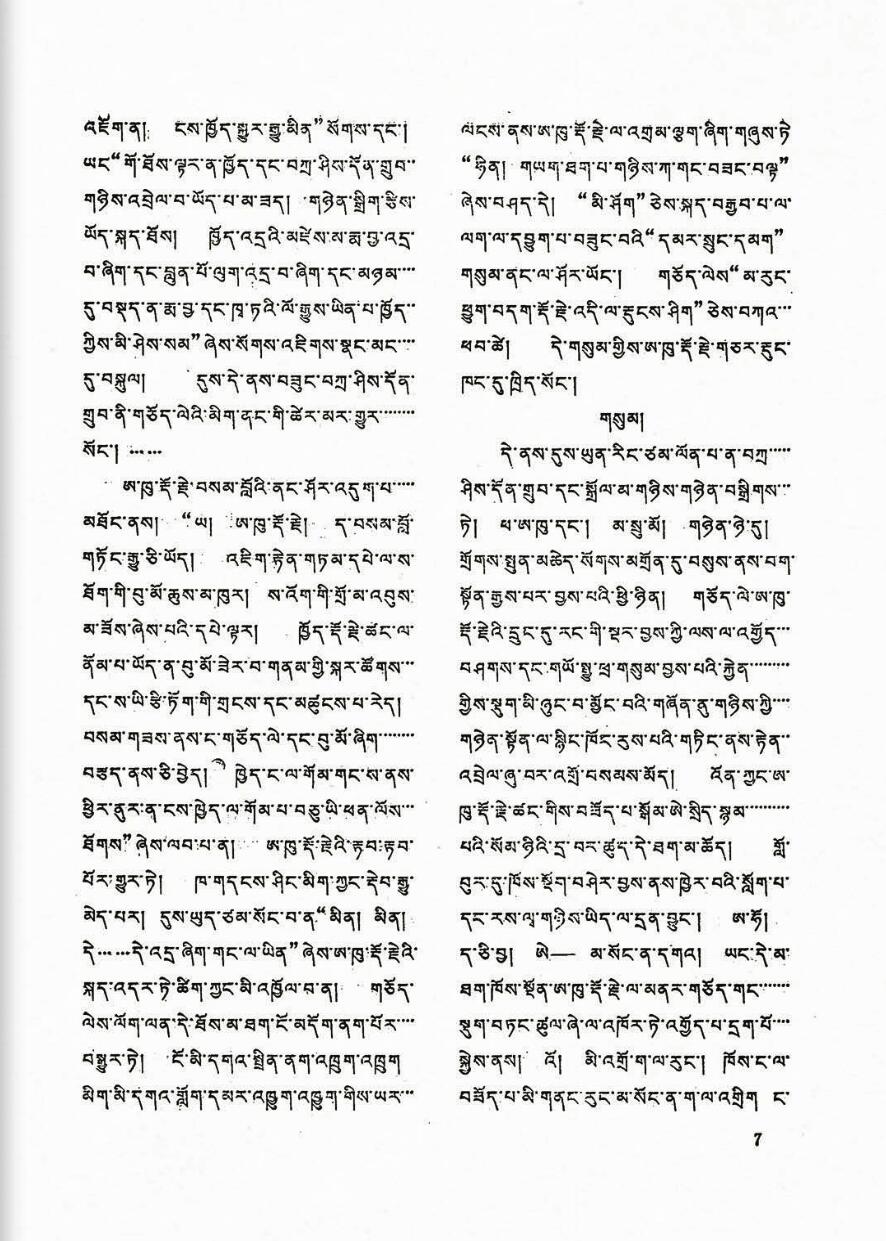 འཛོག་ན། ངས་ཁྱོད་སྐྱུར་རྒྱུ་མིན”སོགས་དང་།
ཡང“གོ་ཐོས་ལྟར་ན་ཁྱོད་དང་བཀྲ་ཤིས་དོན་གྲུབ་
གཉིས་འབྲེལ་བ་ཡོད་པ་མ་ཟད། གཉེན་སྒྲིག་རྩིས་
ཡོད་སྐད་ཐོས། ཁྱོད་འདྲའི་མཛེས་མ་རྨ་བྱ་འདྲ་
བ་ཞིག་དང་བླུན་པོ་ལུག་འདྲ་བ་ཞིག་དང་མཉམ་…
དུ་བསྡད་ན་རྨ་བྱ་དང་ཁྭ་ཏའི་ལོ་རྒྱུས་ཡིན་པ་ཁྱོད་
ཀྱིས་མི་ཤེས་སམ”ཞེས་སོགས་འཇིགས་སྣང་མང་…
དུ་བསྐུལ། དུས་དེ་ནས་བཟུང་བཀྲ་ཤིས་དོན་
གྲུབ་ནི་གཙོད་ལེའི་མིག་ནང་གི་ཚེར་མར་གྱུར་……
སོང་། ……
ཨ་ཁུ་རྡོ་རྗེ་བསམ་བློའི་ནང་ཤོར་འདུག་པ་……
མཐོང་ནས། “ཡ། ཨ་ཁུ་རྡོ་རྗེ། ད་བསམ་བློ་
གཏོང་རྒྱུ་ཅི་ཡོད། འཇིག་རྟེན་གཏམ་དཔེ་ལ་ས་
ཐོག་གི་བུ་མོ་ཆུས་མ་ཁུར། ས་འོག་གི་གྲོ་མ་འབུས་
མ་ཟོས་ཞེས་པའི་དཔེ་ལྟར། ཁྱོད་རྡོ་རྗེ་ཚང་ལ་
ནོམ་པ་ཡོད་ན་བུ་མོ་ཟེར་བ་གནམ་གྱི་སྐར་ཚོགས་…
དང་ས་ཡི་རྩི་ཏོག་གི་གྲངས་དང་མཚུངས་པ་རེད།
བསམ་གཟས་ནས་ང་གཙོད་ལེ་དང་བུ་མོ་ཞིག་……
བཙད་ནས་ཅི་བྱེད། ཁྱེད་ང་ལ་གོམ་གང་ས་ནས་
ཕྱིར་ནུར་ན་ངས་ཁྱེད་ལ་གོམ་པ་བཅུ་ཡི་ཕན་ལོས་…
ཐོགས”ཞེས་ལབ་པ་ན། ཨ་ཁུ་རྡོ་རྗེའི་རྟབ་རྟབ་
པོར་གྱུར་ཏེ། ཁ་གདངས་ཤིང་མིག་ཀྱང་རྡེབ་རྒྱུ་
མེད་པར། དུས་ཡུད་ཙམ་སོང་བ་ན“མིན། མིན།
དེ་……དེ་འདྲ་ཞིག་གང་ལ་ཡིན”ཞེས་ཨ་ཁུ་རྡོ་རྗེའི་
སྐད་འདར་ཏེ་ཚིག་ཀྱང་མི་འཁྱོལ་བ་ན། གཙོད་
ལེས་ལོག་ལན་དེ་ཐོས་མ་ཐག་ངོ་མདོག་ནག་པོར་…
བསྒྱུར་ཏེ། ངོ་མི་དགའ་སྤྲིན་ནག་འཁྲུག་འཁྲུག
མིག་མི་དགའ་གློག་དམར་འཁྱུག་འཁྱུག་གིས་ཡར་…
ལངས་ནས་ཨ་ཁུ་རྡོ་རྗེ་ལ་འགྲམ་ལྕག་ཞིག་གཞུས་ཏེ
“ཧིན། གཡག་ཐག་པ་གཉིས་ཀ་གང་བཟང་བལྟ”
ཞེས་བཤད་དེ། “མི་ཤོག”ཅེས་སྐད་བརྒྱབ་པ་ལ་
ལག་ལ་དབྱུག་པ་བཟུང་བའི“དམར་སྲུང་དམག”
གསུམ་ནང་ལ་ཤོར་ཡོང་། གཙོད་ལེས“མ་རུང་
ཕྱུག་བདག་རྡོ་རྗེ་འདི་ལ་རྡུངས་ཤིག”ཅེས་བཀའ་…
ཕབ་ཚེ། དེ་གསུམ་གྱིས་ཨ་ཁུ་རྡོ་རྗེ་གཅར་རྡུང་
ཁང་དུ་ཁྲིད་སོང་།
གསུམ།
དེ་ནས་དུས་ཡུན་རིང་ཙམ་ལོན་པ་ན་བཀྲ་……
ཤིས་དོན་གྲུབ་དང་སྒྲོལ་མ་གཉིས་གཉེན་བསྒྲིགས་…
ཏེ། ཕ་ཨ་ཁུ་དང་། མ་སྲུ་མོ། གཉེན་ཉེ་དུ།
གྲོགས་སྤུན་མཆེད་སོགས་མགྲོན་དུ་བསུས་ནས་བག་
སྟོན་རྒྱས་པར་བྱས་པའི་ཕྱི་ཉིན། གཙོད་ལེ་ཨ་ཁུ་
རྡོ་རྗེའི་དྲུང་དུ་རང་གི་སྔར་བྱས་ཀྱི་ལས་ལ་འགྱོད་…
བཤགས་དང་གཡོ་སྒྱུ་ཕྲ་གསུམ་བྱས་པའི་རྐྱེན་………
གྱིས་སྡུག་མི་ཉུང་བ་མྱོང་བའི་གཞོན་ནུ་གཉིས་ཀྱི་…
གཉེན་སྟོན་ལ་སྙིང་ཁོང་རུས་པའི་གཏིང་ནས་རྟེན་
འབྲེལ་ཞུ་བར་འགྲོ་བསམས་མོད། འོན་ཀྱང་ཨ་
ཁུ་རྡོ་རྗེ་ཚང་གིས་བཟོད་པ་སྒོམ་ཨེ་སྲིད་སྙམ་………
པའི་སོམ་ཉིའི་དྲ་བར་ཚུད་དེ་ཐག་མ་ཆོད། གློ་
བུར་དུ་ཁོས་སྔོག་བཤེར་བྱས་ནས་ཁྱེར་བའི་སློག་པ་
དང་རས་ལྭ་གཉིས་ཡིད་ལ་དྲན་བྱུང་། ཨ་ཧོ།
ད་ཅི་བྱ། ཨེ— མ་སོང་ན་དགའ། ཡང་དེ་མ་
ཐག་ཁོས་སྔོན་ཨ་ཁུ་རྡོ་རྗེ་ལ་མནར་གཅོད་གང་……
སྡུག་བཏང་ཚུལ་ཞེ་ལ་འཁོར་ཏེ་འགྱོད་པ་དྲག་པོ་…
སྐྱེས་ནས། འོ། མི་འགྲོ་ག་ལ་རུང་། ཁོས་ང་ལ་
བཟོད་པ་མི་གནང་རུང་མ་སོང་ན་ག་ལ་འགྲིག ང་
7